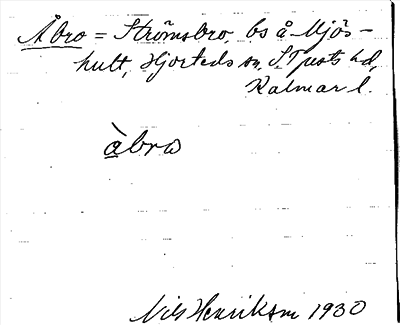 Åbro = Strömsbro, bs å Mjös-
hult, Hjorteds sn, S. Tjusts hd,
Kalmar l.
àbrω
Nils Henriksson 1930